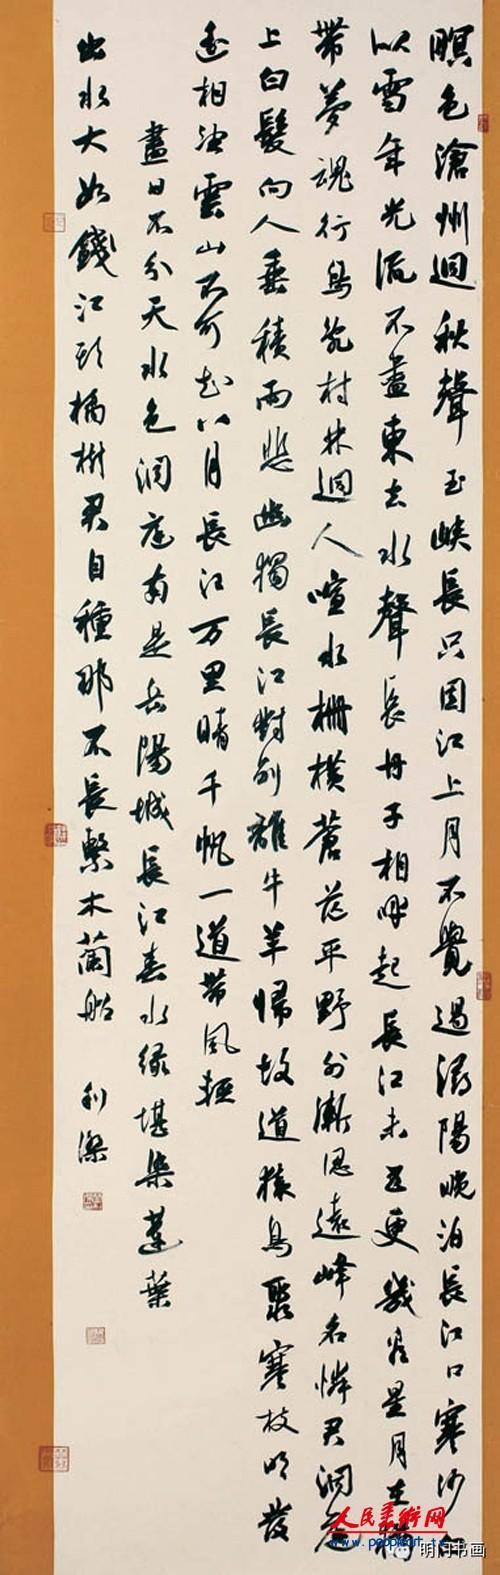 暝色滄州迴秋聲玉峽長只因江上月不覺過潯陽晚泊長江口寒沙白
似雪年光流不盡東去水聲長舟子相呼起長江未五更幾看星月在猶
帶夢魂行鳥亂村林迴人喧水柵橫蒼茫平野外漸認遠峰名憐君洞庭
上白髮向人垂積雨悲幽獨長江對別離牛羊歸故道猿鳥聚寒枝明發
遙相望雲山不可知八月長江万里晴千帆一道帶風輕
盡日不分天水色洞庭南是岳陽城長江春水綠堪染蓮葉
出水大如錢江頭橘樹君自種那不長繫木蘭船
人民美术网
书画